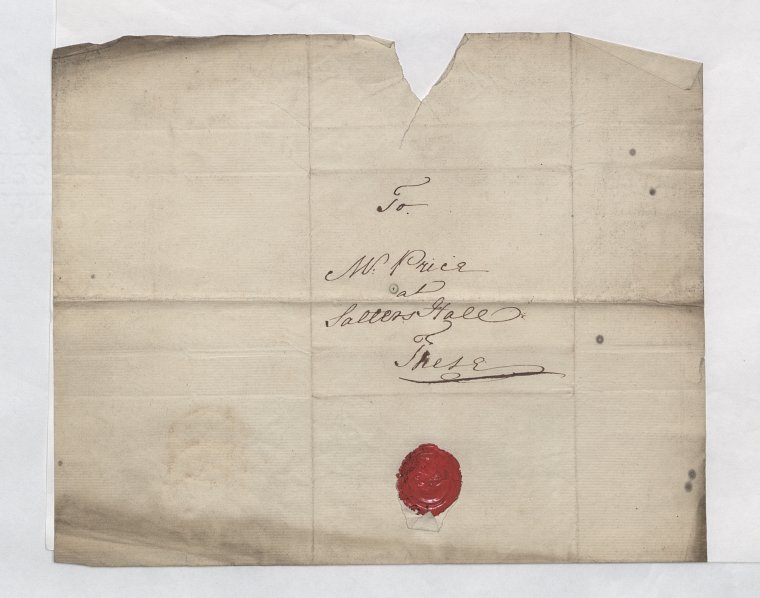 To
Mr. Price
at
Salters Hall
These